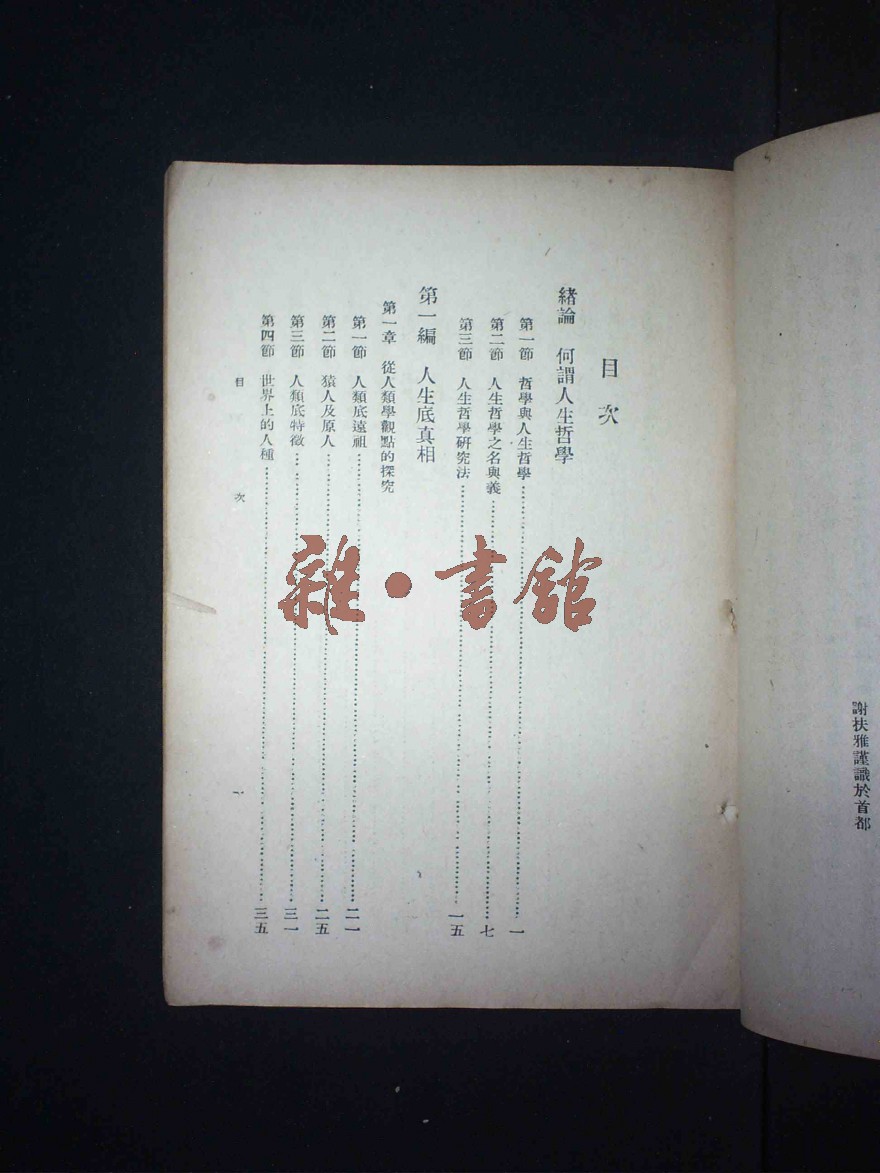 謝扶雅謹識於首都
目次
緒論 何謂人生哲學
第一節 哲學與人生哲學 一
第二節 人生哲學之名與義 七
第三節 人生哲學研究法 一五
第一編 人生底真相
第一章 從人類學觀點的探究
第一節 人類底遠祖 二一
第二節 猿人及原人 二五
第三節 人類底特徵 三一
第四節 世界上的人種 三五
目次 一
雜·書館